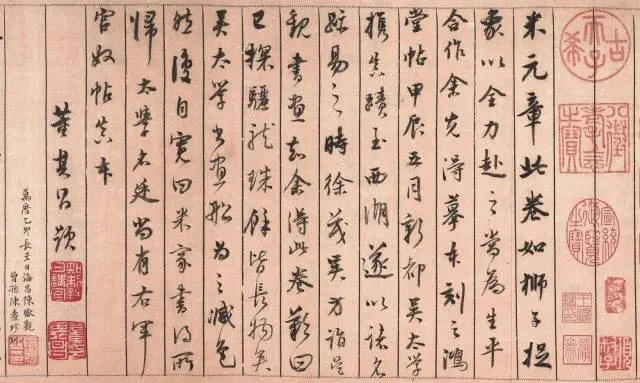 古希天子
八徵耄念之寶
宣統御覽之寶
米元章此卷如獅子捉
象以全力赴之當為生平
合作余先得摹本刻之鴻
堂帖甲辰五月新都吳太學
攜真蹟至西湖遂以諸名
跡易之時徐茂吳方詣吳
觀書畫知余得此卷歎曰
已探驪龍珠餘皆長物矣
吳太學書畫船為之減色
然復自寬曰米家書得所
歸太學名廷尚有右軍
官奴帖真本
董其昌題
知制誥日講官
萬曆乙卯長至日海昌陳瓛觀
曾孫陳